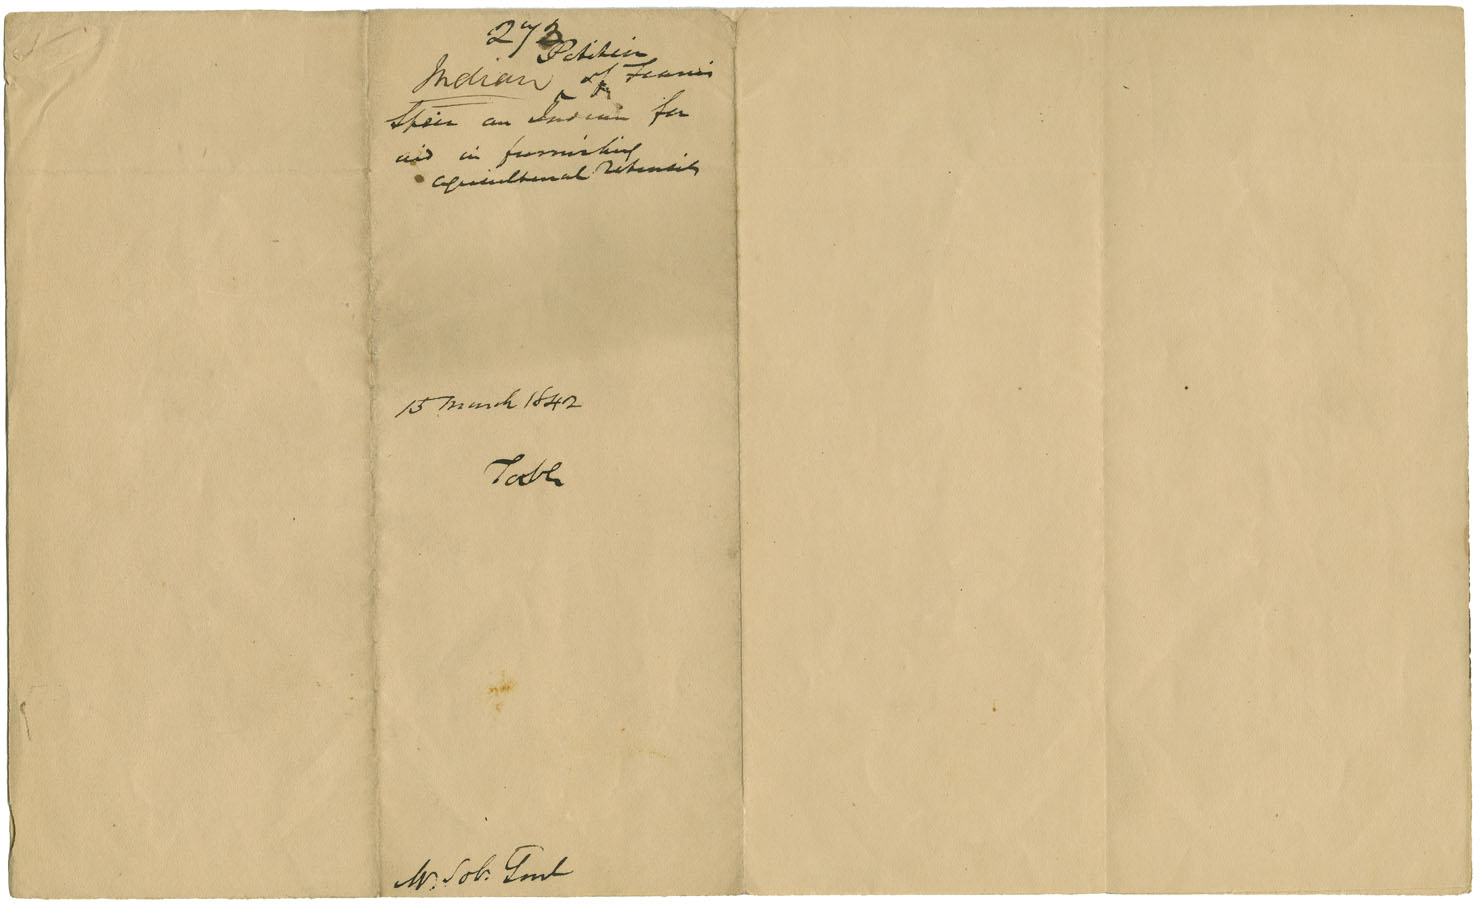 273
Petition
Indian of Francis
Speir an Indian for
aid in furnishing
agricultural Utensils
15 March 1842
Table
Mr. Sol. Genl